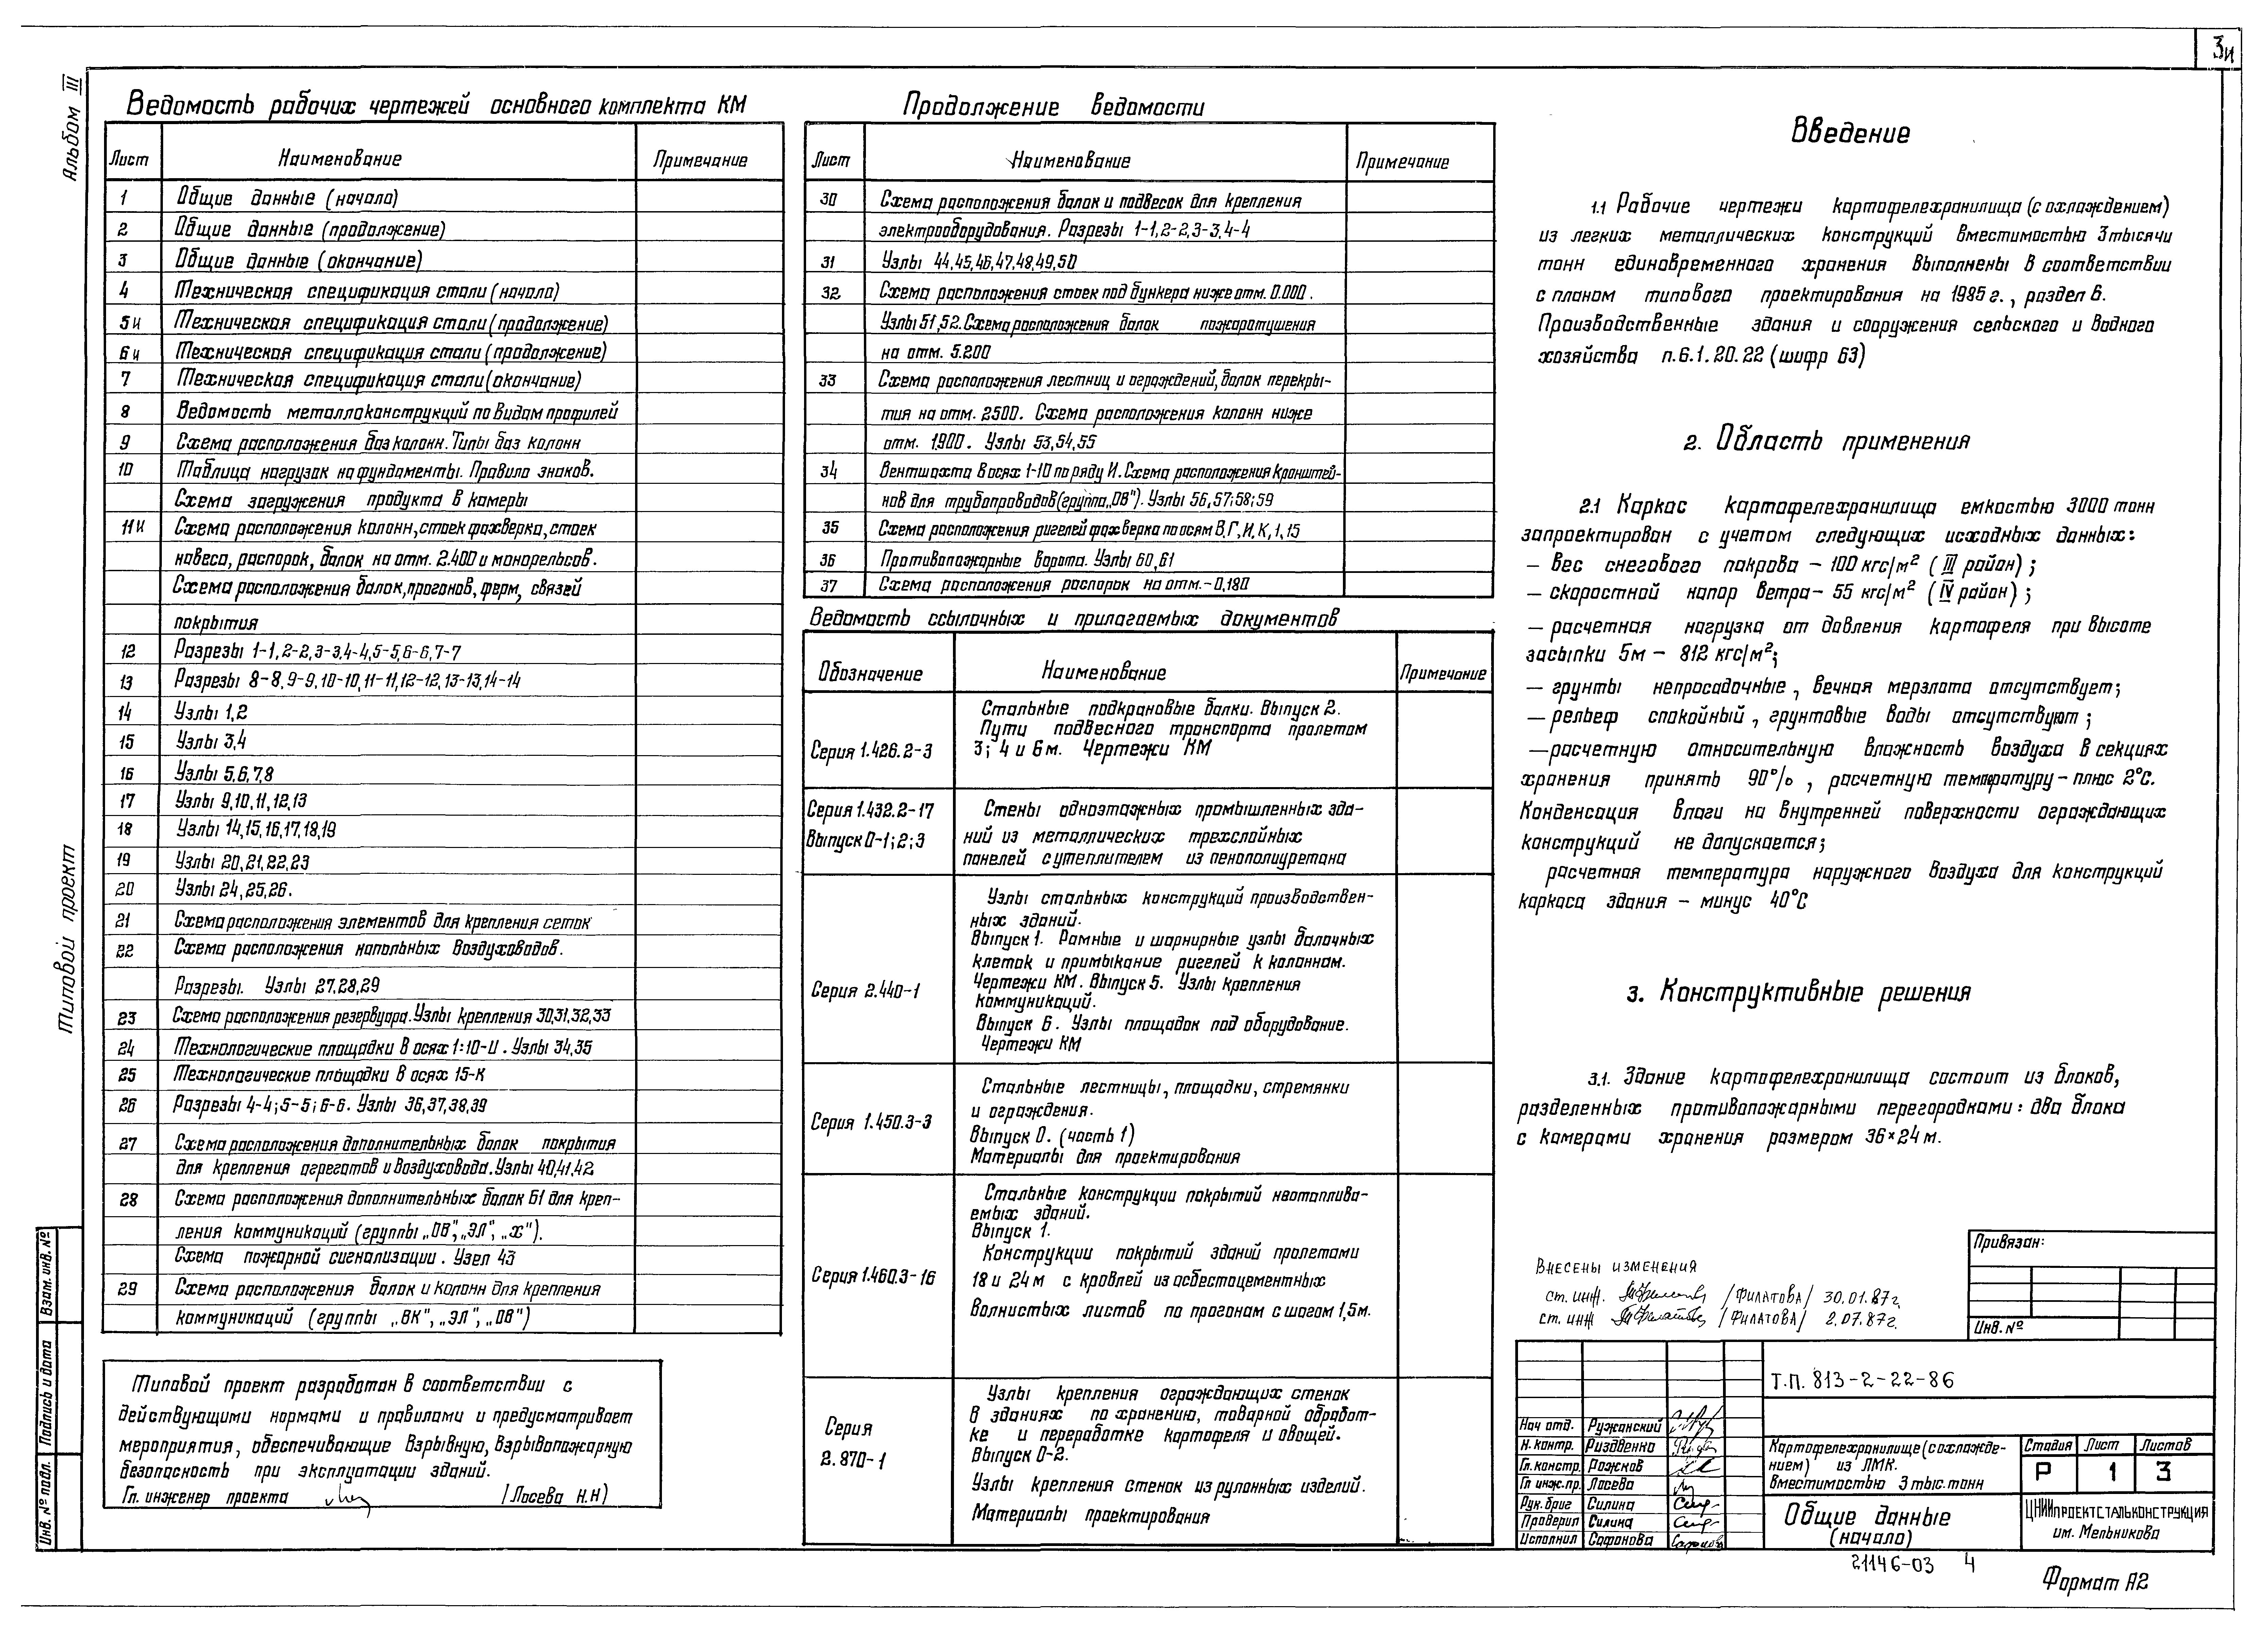 3и
Альбом III
Типовой проект
Взам. инв. №
Подпись и дата
Инв. № подл.
Ведомость рабочих чертежей основного комплекта КМ
Лист Наименование Примечание
1 Общие данные (начало)
2 Общие данные (продолжение)
3 Общие данные (окончание)
4 Техническая спецификация стали (начало)
5и Техническая спецификация стали (продолжение)
6и Техническая спецификация стали (продолжение)
7 Техническая спецификация стали (окончание)
8 Ведомость металлоконструкций по видам профилей
9 Схема расположения баз колонн. Типы баз колонн
10 Таблица нагрузок на фундаменты. Правило знаков.
Схема загружения продукта в камеры
11и Схема расположения колонн, стоек фахверка, стоек
навеса, распорок, балок на отм. 2.400 и монорельсов.
Схема расположения балок, прогонов, ферм, связей
покрытия
12 Разрезы 1-1, 2-2, 3-3, 4-4, 5-5, 6-6, 7-7
13 Разрезы 8-8, 9-9, 10-10, 11-11, 12-12, 13-13, 14-14
14 Узлы 1,2
15 Узлы 3,4
16 Узлы 5,6,7,8
17 Узлы 9,10,11,12,13
18 Узлы 14,15,16,17,18,19
19 Узлы 20,21,22,23
20 Узлы 24,25,26.
21 Схема расположения элементов для крепления сеток
22 Схема расположения напольных воздуховодов.
Разрезы. Узлы 27,28,29
23 Схема расположения резервуара. Узлы крепления 30,31,32,33
24 Технологические площадки в осях 1÷10-И. Узлы 34,35
25 Технологические площадки в осях 15-К
26 Разрезы 4-4; 5-5; 6-6. Узлы 36,37,38,39
27 Схема расположения дополнительных балок покрытия
для крепления агрегатов и воздуховода. Узлы 40,41,42
28 Схема расположения дополнительных балок Б1 для креп-
ления коммуникаций (группы „ОВ", „ЭЛ", „х").
Схема пожарной сигнализации. Узел 43
29 Схема расположения балок и колонн для крепления
коммуникаций (группы „ВК", „ЭЛ", „ОВ")
Типовой проект разработан в соответствии с
действующими нормами и правилами и предусматривает
мероприятия, обеспечивающие взрывную, взрывопожарную
безопасность при эксплуатации зданий.
Гл. инженер проекта /Лосева Н.Н/
Продолжение ведомости
Лист Наименование Примечание
30 Схема расположения балок и подвесок для крепления
электрооборудования. Разрезы 1-1, 2-2, 3-3, 4-4
31 Узлы 44,45,46,47,48,49,50
32 Схема расположения стоек под бункера ниже отм. 0.000.
Узлы 51,52. Схема расположения балок пожаротушения
на отм. 5.200
33 Схема расположения лестниц и ограждений, балок перекры-
тия на отм. 2500. Схема расположения колонн ниже
отм. 1.900. Узлы 53,54,55
34 Вентшахта в осях 1-10 по ряду И. Схема расположения кронштей-
нов для трубопроводов (группа „ОВ"). Узлы 56,57;58;59
35 Схема расположения ригелей фахверка по осям В,Г,И,К,1,15
36 Противопожарные ворота. Узлы 60,61
37 Схема расположения распорок на отм.-0,180
Ведомость ссылочных и прилагаемых документов
Обозначение Наименование Примечание
Стальные подкрановые балки. Выпуск 2.
Пути подвесного транспорта пролетом
Серия 1.426.2-3 3; 4 и 6м. Чертежи КМ
Серия 1.432.2-17 Стены одноэтажных промышленных зда-
Выпуск 0-1; 2; 3 ний из металлических трехслойных
панелей с утеплителем из пенополиуретана
Узлы стальных конструкций производствен-
ных зданий.
Выпуск 1. Рамные и шарнирные узлы балочных
клеток и примыкание ригелей к колоннам.
Серия 2.440-1 Чертежи КМ. Выпуск 5. Узлы крепления
коммуникаций.
Выпуск 6. Узлы площадок под оборудование.
Чертежи КМ
Стальные лестницы, площадки, стремянки
и ограждения.
Серия 1.450.3-3 Выпуск 0. (часть 1)
Материалы для проектирования
Стальные конструкции покрытий неотаплива-
емых зданий.
Выпуск 1.
Конструкции покрытий зданий пролетами
Серия 1.460.3-16 18 и 24м с кровлей из асбестоцементных
волнистых листов по прогонам с шагом 1,5м.
Узлы крепления ограждающих стенок
в зданиях по хранению, товарной обработ-
Серия ке и переработке картофеля и овощей.
2.870-1 Выпуск 0-2.
Узлы крепления стенок из рулонных изделий.
Материалы проектирования
Введение
1.1 Рабочие чертежи картофелехранилища (с охлаждением)
из легких металлических конструкций вместимостью 3 тысячи
тонн единовременного хранения выполнены в соответствии
с планом типового проектирования на 1985 г., раздел 6.
Производственные здания и сооружения сельского и водного
хозяйства п.6.1.20.22 (шифр 63)
2. Область применения
2.1 Каркас картофелехранилища емкостью 3000 тонн
запроектирован с учетом следующих исходных данных:
— вес снегового покрова — 100 кгс/м² (III район);
— скоростной напор ветра — 55 кгс/м² (IV район);
— расчетная нагрузка от давления картофеля при высоте
засыпки 5м — 812 кгс/м²;
— грунты непросадочные, вечная мерзлота отсутствует;
— рельеф спокойный, грунтовые воды отсутствуют;
— расчетную относительную влажность воздуха в секциях
хранения принять 90%, расчетную температуру — плюс 2°С.
Конденсация влаги на внутренней поверхности ограждающих
конструкций не допускается;
расчетная температура наружного воздуха для конструкций
каркаса здания — минус 40°С
3. Конструктивные решения
3.1. Здание картофелехранилища состоит из блоков,
разделенных противопожарными перегородками: два блока
с камерами хранения размером 36×24 м.
Внесены изменения
ст. инж. /Филатова/ 30.01.87г.
ст. инж /Филатова/ 2.07.87г.
Привязан:
Инв. №
Т.П. 813-2-22-86
Нач отд. Ружанский
Н. контр. Риздвенко
Гл. констр. Рожков
Гл инж. пр. Лосева
Рук. бриг Силина
Проверил Силина
Исполнил Сафонова
Картофелехранилище (с охлажде-
нием) из ЛМК.
вместимостью 3 тыс. тонн
Стадия Лист Листов
Р 1 3
Общие данные
(начало)
ЦНИИпроектстальконструкция
им. Мельникова
21146-03 4
Формат А2